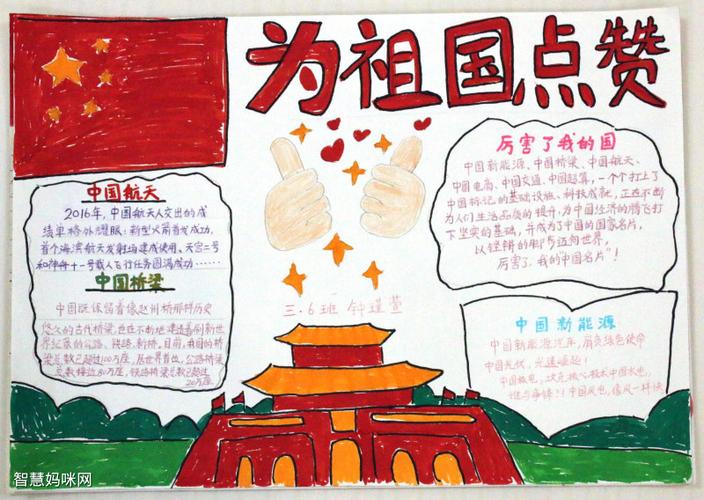 为祖国点赞
中国航天
2016年,中国航天人交出的成
绩单格外耀眼:新型火箭首发成功,
首个海滨航天发射场建成使用、天宫二号
和神舟十一号载人飞行任务圆满成功……
中国桥梁
中国既保留着像赵州桥那样历史
悠久的古代桥梁,也在不断地建造着刷新世
界纪录的公路、铁路新桥。目前,我国的桥
梁总数已超过100万座,居世界首位,公路桥梁
总数接近80万座,铁路桥梁总数已超过
20万座。
三·6班 钟瑾萱
厉害了我的国
中国新能源、中国桥梁、中国航天、
中国电商、中国交通、中国超算,一个个打上了
中国标记的基础设施、科技成就,正在不断
为人们生活品质的提升,为中国经济的腾飞打
下坚实的基础,并成为了中国的国家名片,
以铿锵的脚步迈向世界,
厉害了,我的中国名片"!
中国新能源
中国新能源汽车,肩负绿色使命
中国光伏,光速崛起!
中国核电,攻克核心技术中国水电,
谁与争锋?!中国风电,像风一样快
智慧妈咪网